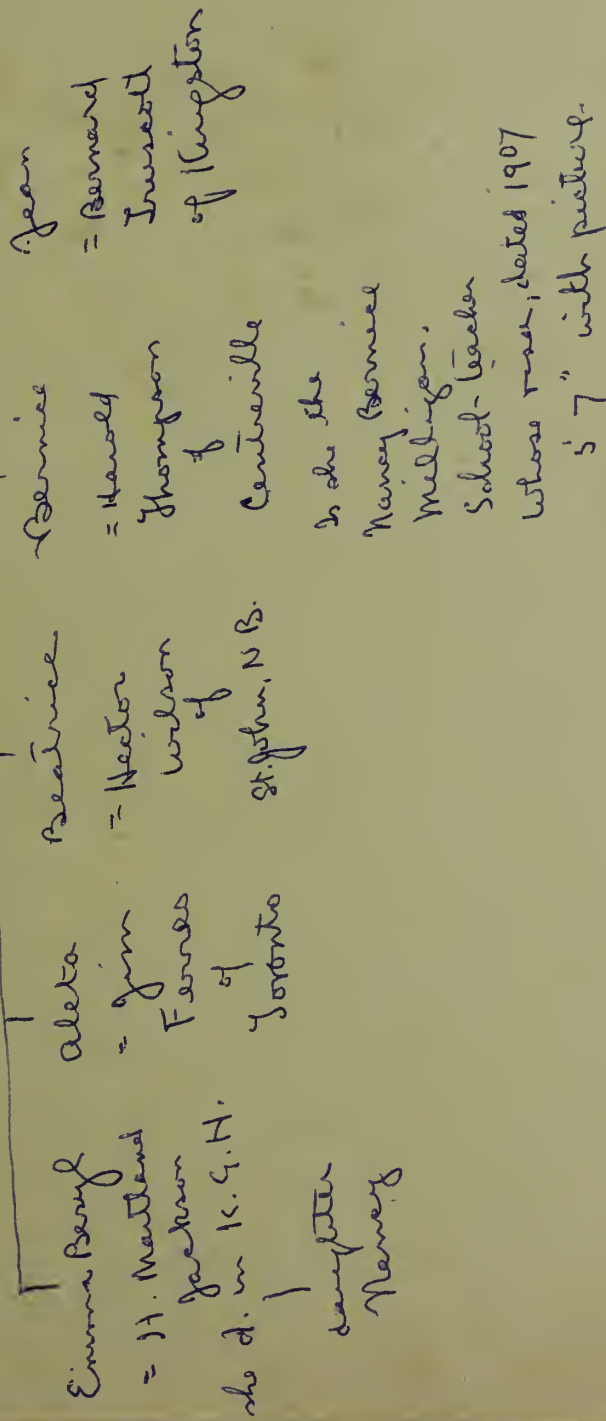 Emma Beryl
= H. Maitland
Jackson
she d. in K.G.H.
daughter
Nancy
Aleta
= Jim
Ferres
of
Toronto
Beatrice
= Hector
Wilson
of
St. John, N B.
Bernice
= Harold
Thompson
of
Centreville
Is she the
Nancy Bernice
Milligan,
School-teacher
whose dated 1907
5' 7" with picture.
Jean
= Bernard
Truscott
of Kingston